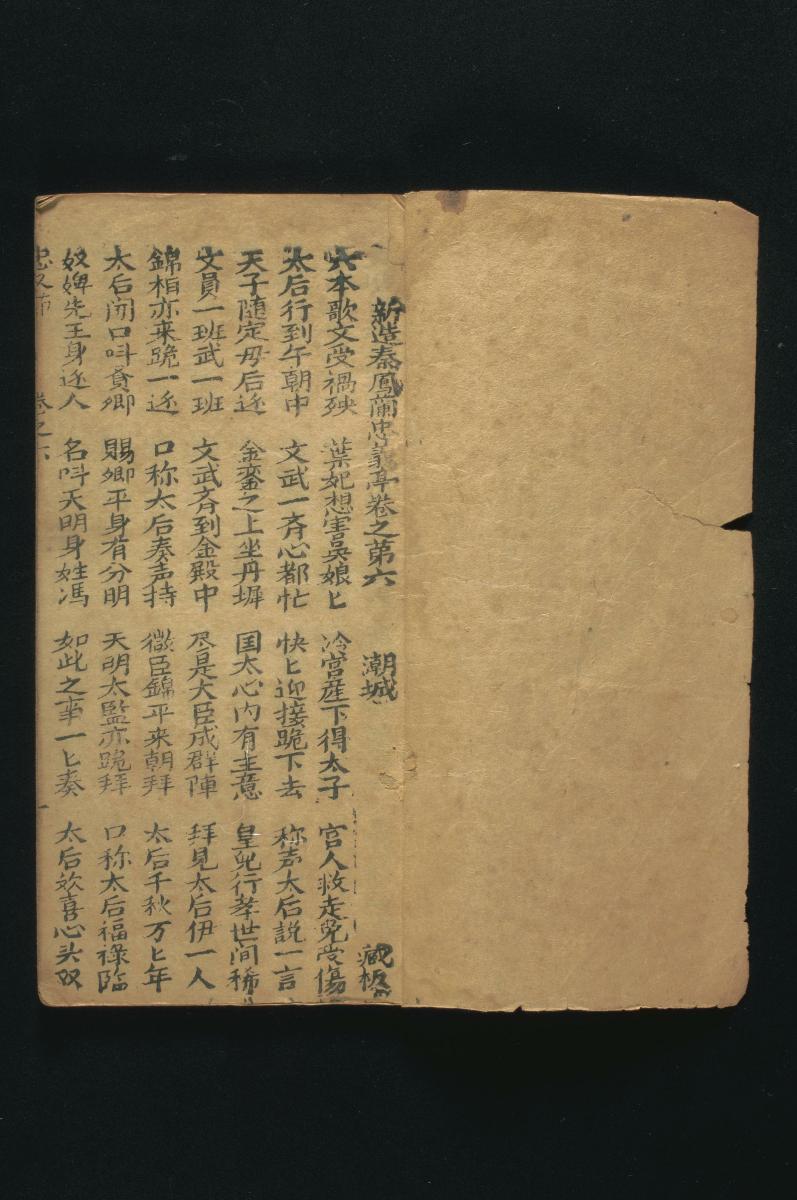 新造秦鳳蘭忠義亭卷之第六 潮城 藏板
六本歌文受禍殃 葉妃想害吳娘匕 冷宮産下得太子 宮人救走免受傷
太后行到午朝中 文武一斉心都忙 快匕迎接跪下去 称声太后說一言
天子随定母后迯 金鑾之上坐丹墀 国太心内有主意 皇兒行孝世间稀
文員一班武一班 文武斉到金殿中 尽是大臣成群陣 拜見太后伊一人
錦相亦来跪一迯 口称太后奏声持 微臣錦平来朝拜 太后千秋万匕年
太后闭口呌賁卿 賜卿平身有分明 天明太監亦跪拜 口称太后福禄臨
奴婢先王身迯人 名呌天明身姓馮 如此之事一匕奏 太后欢喜心头双
忠义节 卷之六 一